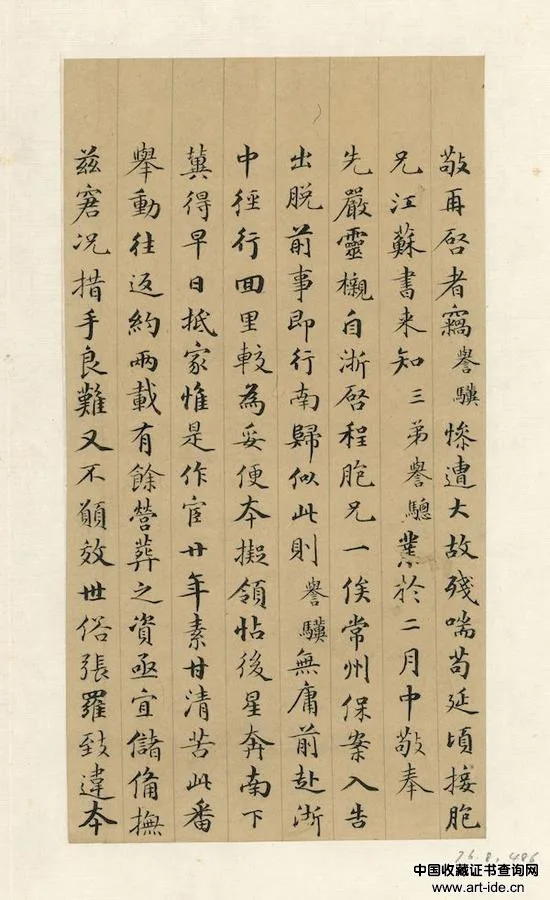 敬再啓者竊譽驥慘遭大故殘喘苟延頃接胞
兄江蘇書来知三弟譽驄業於二月中敬奉
先嚴靈櫬自浙啓程胞兄一俟常州保案入告
出脱前事即行南歸似此則譽驥無庸前赴浙
中徑行回里較為妥便本擬領帖後星奔南下
冀得早日抵家惟是作宦廿年素甘清苦此番
舉動往返約兩載有餘營葬之資亟宜儲俻撫
兹窘况措手良難又不願效世俗張羅致違本
76.8.486
中国收藏证书查询网
www.art-ide.cn